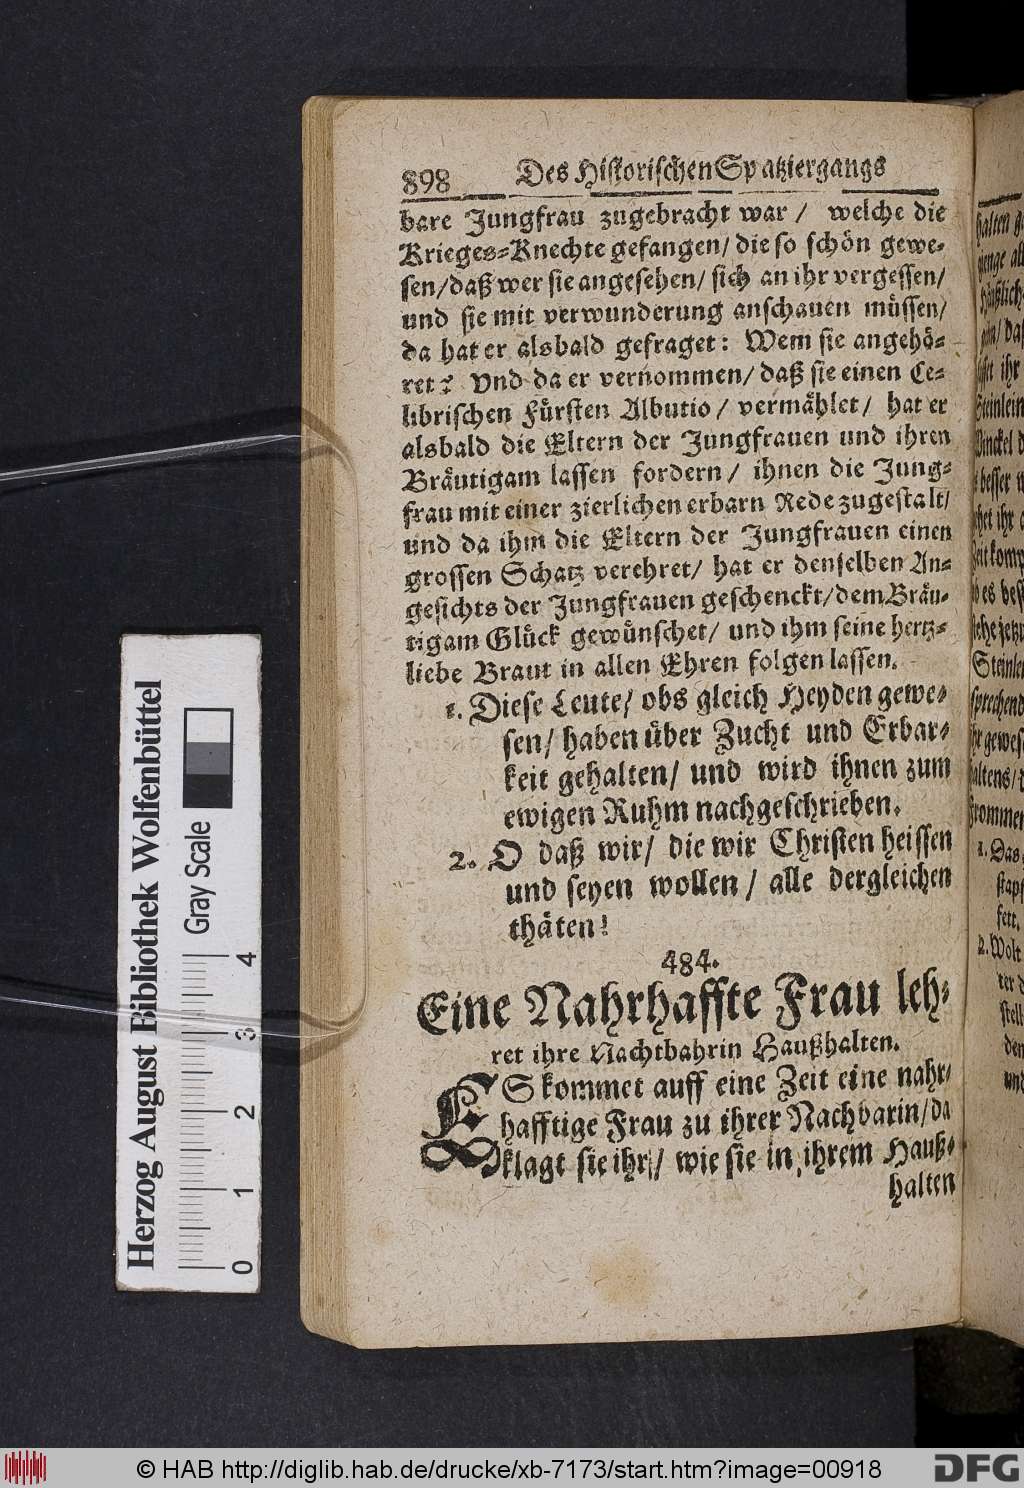 898 Des Historischen Spatziergangs
bare Jungfrau zugebracht war / welche die
Krieges=Knechte gefangen/ die so schön gewe-
sen/daß wer sie angesehen/ sich an ihr vergessen/
und sie mit verwunderung anschauen müssen/
da hat er alsbald gefraget: Wem sie angehö-
ret? Vnd da er vernommen/ daß sie einen Ce-
librischen Fürsten Albutio / vermählet/ hat er
alsbald die Eltern der Jungfrauen und ihren
Bräutigam lassen fordern / ihnen die Jung=
frau mit einer zierlichen erbarn Rede zugestalt/
und da ihm die Eltern der Jungfrauen einen
grossen Schatz verehret/ hat er denselben An-
gesichts der Jungfrauen geschenckt/ dem Bräu-
tigam Glück gewünschet/ und ihm seine hertz-
liebe Braut in allen Ehren folgen lassen.
1. Diese Leute/ obs gleich Heyden gewe-
sen/ haben über Zucht und Erbar-
keit gehalten/ und wird ihnen zum
ewigen Ruhm nachgeschrieben.
2. O daß wir/ die wir Christen heissen
und seyen wollen / alle dergleichen
thäten!
484.
Eine Nahrhaffte Frau leh-
ret ihre Nachtbahrin Haußhalten.
ES kommet auff eine Zeit eine nahr-
hafftige Frau zu ihrer Nachbarin/da
klagt sie ihr/ wie sie in ihrem Hauß-
halten
halten
häußlich
ihr
Winckel
besser
ihr
es
jetzt
sprechend
1. Das
2. Wolt
den
und
Herzog August Bibliothek Wolfenbüttel
Gray Scale
0 1 2 3 4
© HAB http://diglib.hab.de/drucke/xb-7173/start.htm?image=00918
DFG